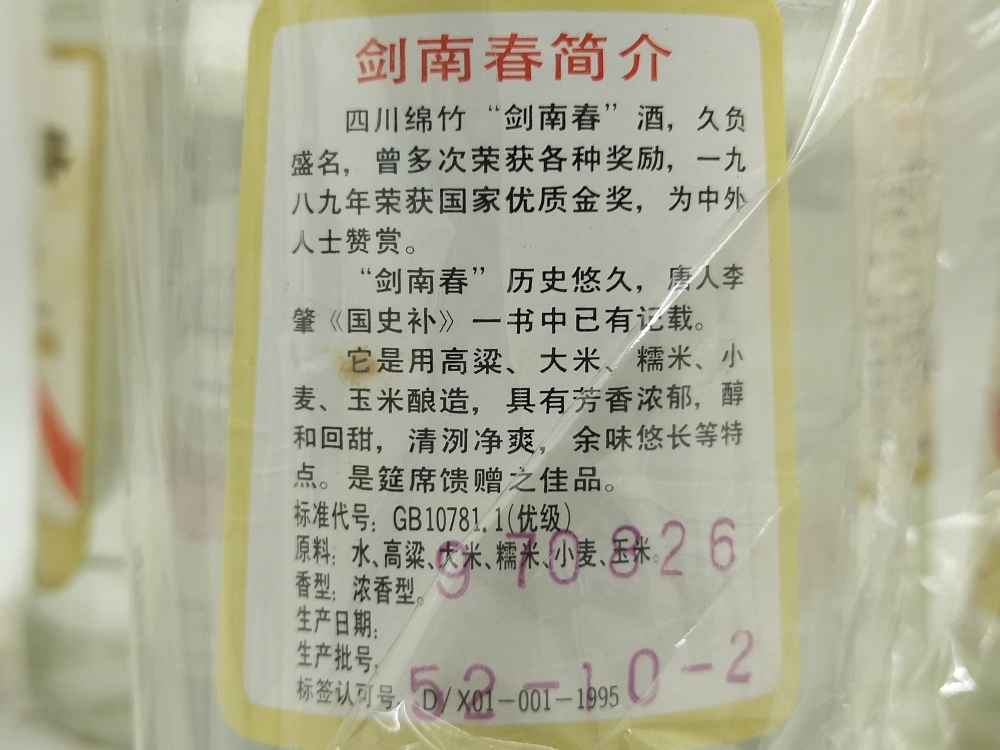 剑南春简介
四川绵竹“剑南春”酒，久负
盛名，曾多次荣获各种奖励，一九
八九年荣获国家优质金奖，为中外
人士赞赏。
“剑南春”历史悠久，唐人李
肇《国史补》一书中已有记载。
它是用高粱、大米、糯米、小
麦、玉米酿造，具有芳香浓郁，醇
和回甜，清洌净爽，余味悠长等特
点。是筵席馈赠之佳品。
标准代号：GB10781.1(优级)
原料：水、高粱、大米、糯米、小麦、玉米。
970826
香型：浓香型。
生产日期：
生产批号：
52-10-2
标签认可号：D/X01-001-1995